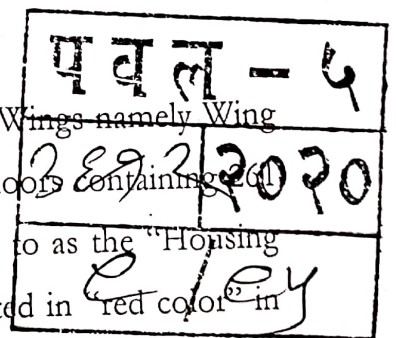 पवल - ५
Wings namely Wing
३६१२ २०२०
oors containing 261
to as the “Housing
ed in “red color” in